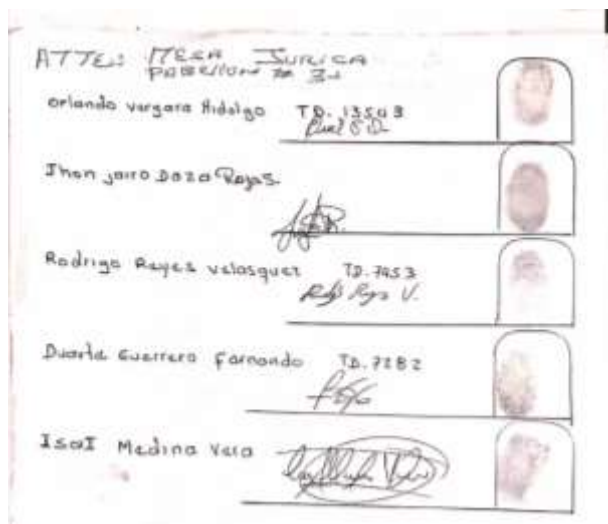 ATTE: MESA JURICA
PABELLON # 3-
Orlando vergara Hidalgo TD. 13503
Jhon jairo Daza Rojas.
Rodrigo Reyes velasquez TD. 7453
Rod Reyes V.
Duarte Guerrero Fernando TD. 7282
IsaI Medina Vera